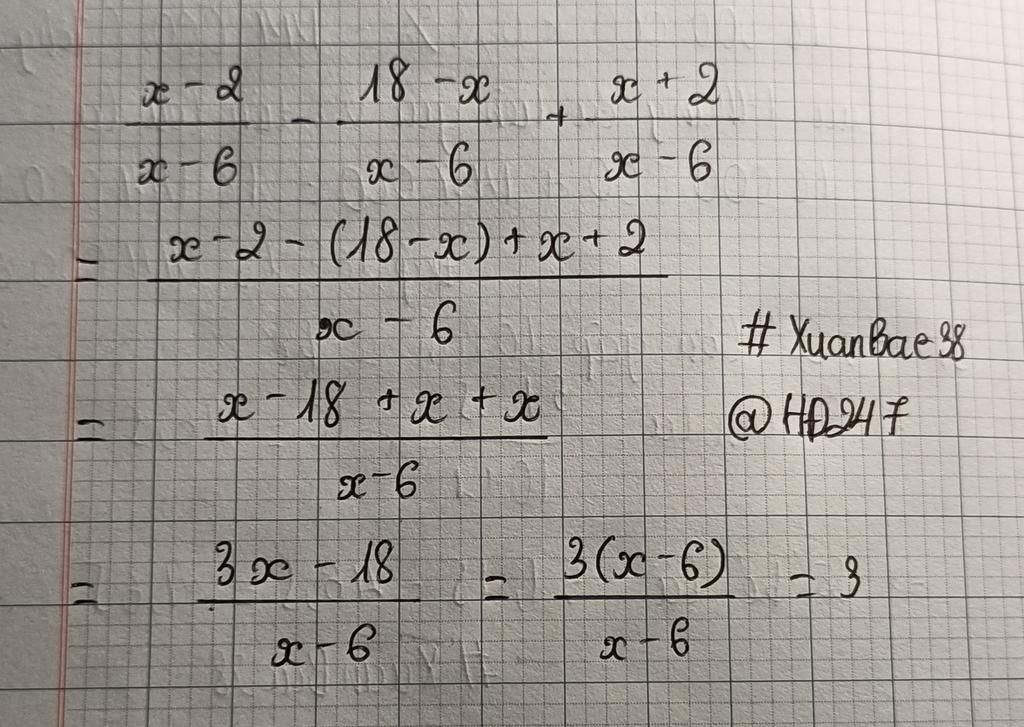 x - 2 / x - 6 - 18 - x / x - 6 + x + 2 / x - 6
= x - 2 - (18 - x) + x + 2 / x - 6
# XuanBae38
= x - 18 + x + x / x - 6
@HD247
= 3x - 18 / x - 6 = 3(x - 6) / x - 6 = 3